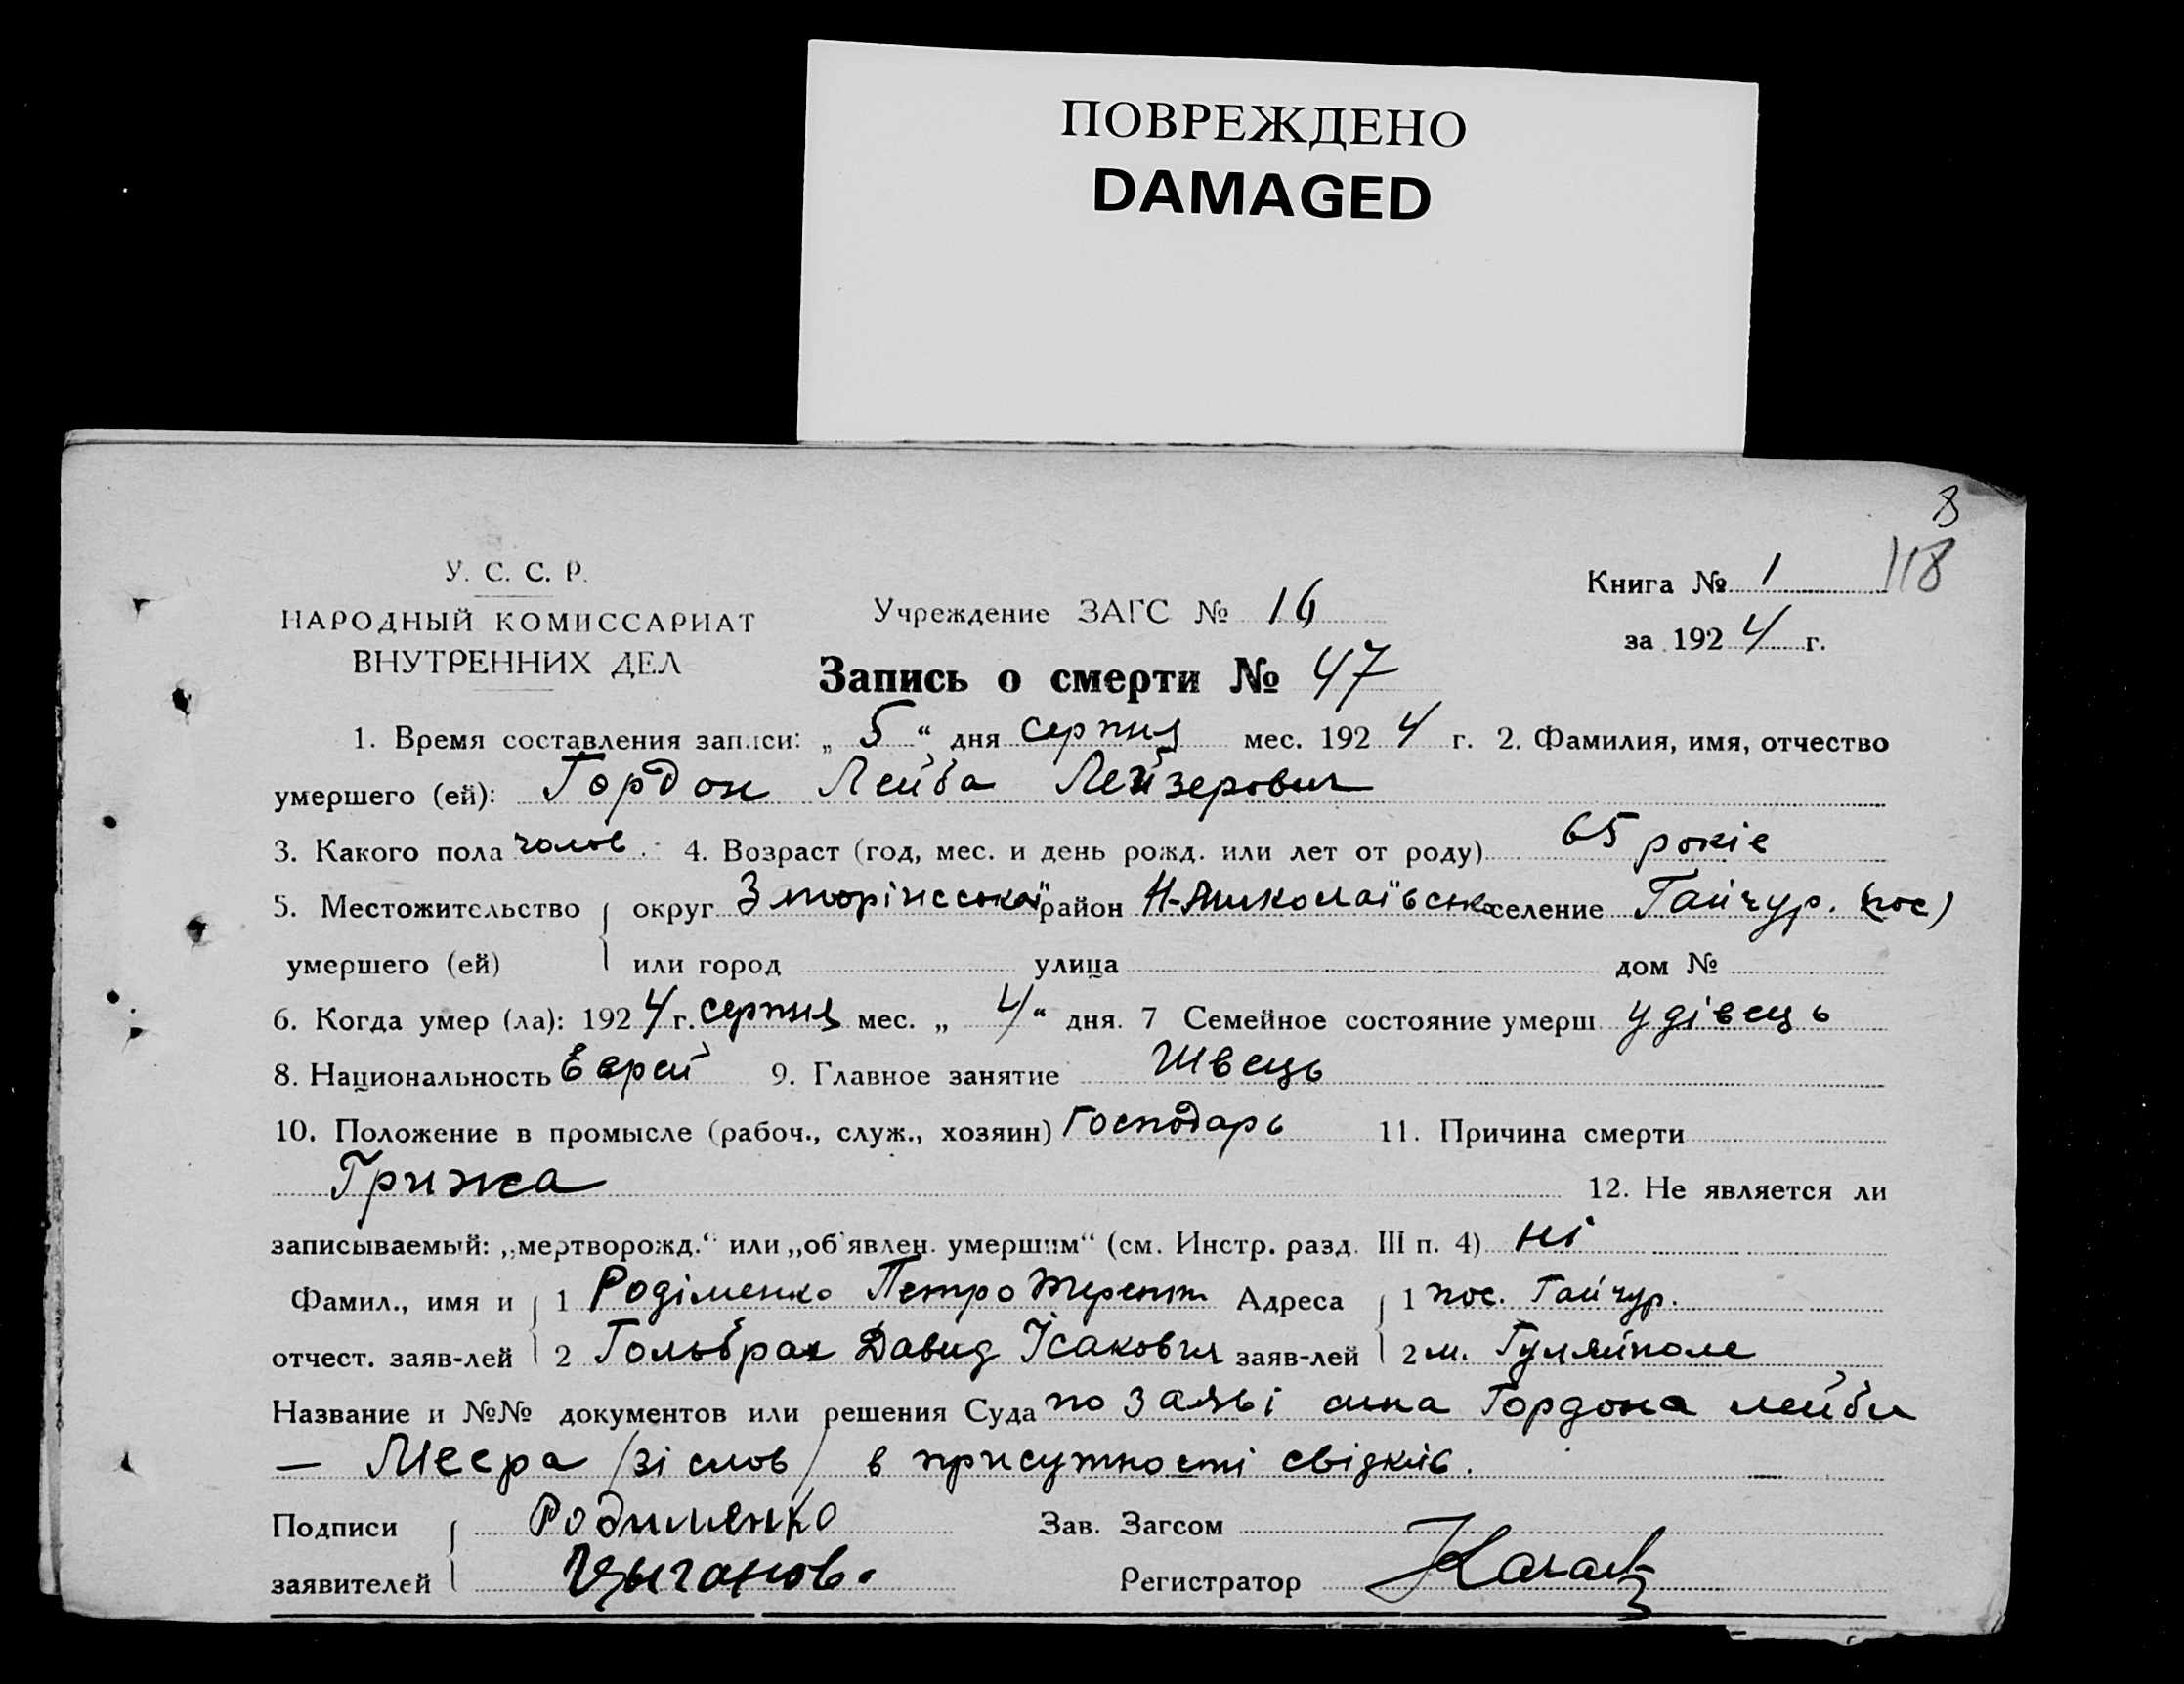 ПОВРЕЖДЕНО
DAMAGED
8
118
У. С. С. Р.
НАРОДНЫЙ КОМИССАРИАТ
ВНУТРЕННИХ ДЕЛ
Учреждение ЗАГС № 16
Книга № 1
за 1924 г.
Запись о смерти № 47
1. Время составления записи: „ 5 “ дня серпня мес. 1924 г. 2. Фамилия, имя, отчество
умершего (ей): Гордон Лейба Лейзерович
3. Какого пола чолов. 4. Возраст (год, мес. и день рожд. или лет от роду) 65 років
5. Местожительство округ район Н-Миколаївськ селение Гайчур. (пос)
умершего (ей) или город улица дом №
6. Когда умер (ла): 1924 г. серпня мес. „ 4 “ дня. 7 Семейное состояние умерш удівець
8. Национальность Еврей 9. Главное занятие Швець
10. Положение в промысле (рабоч., служ., хозяин) Господарь 11. Причина смерти
Грижа 12. Не является ли
записываемый: „мертворожд.“ или „об'явлен. умершим“ (см. Инстр. разд. III п. 4) ні
Фамил., имя и 1 Родіменко Петро Терент Адреса 1 пос. Гайчур.
отчест. заяв-лей 2 Гольбрах Давид Ісакович заяв-лей 2 м. Гуляйполе
Название и №№ документов или решения Суда по заяві сина Гордона лейби
— Меера /зі слов/ в присутности свідків.
Подписи Родименко Зав. Загсом
заявителей Цыганов. Регистратор